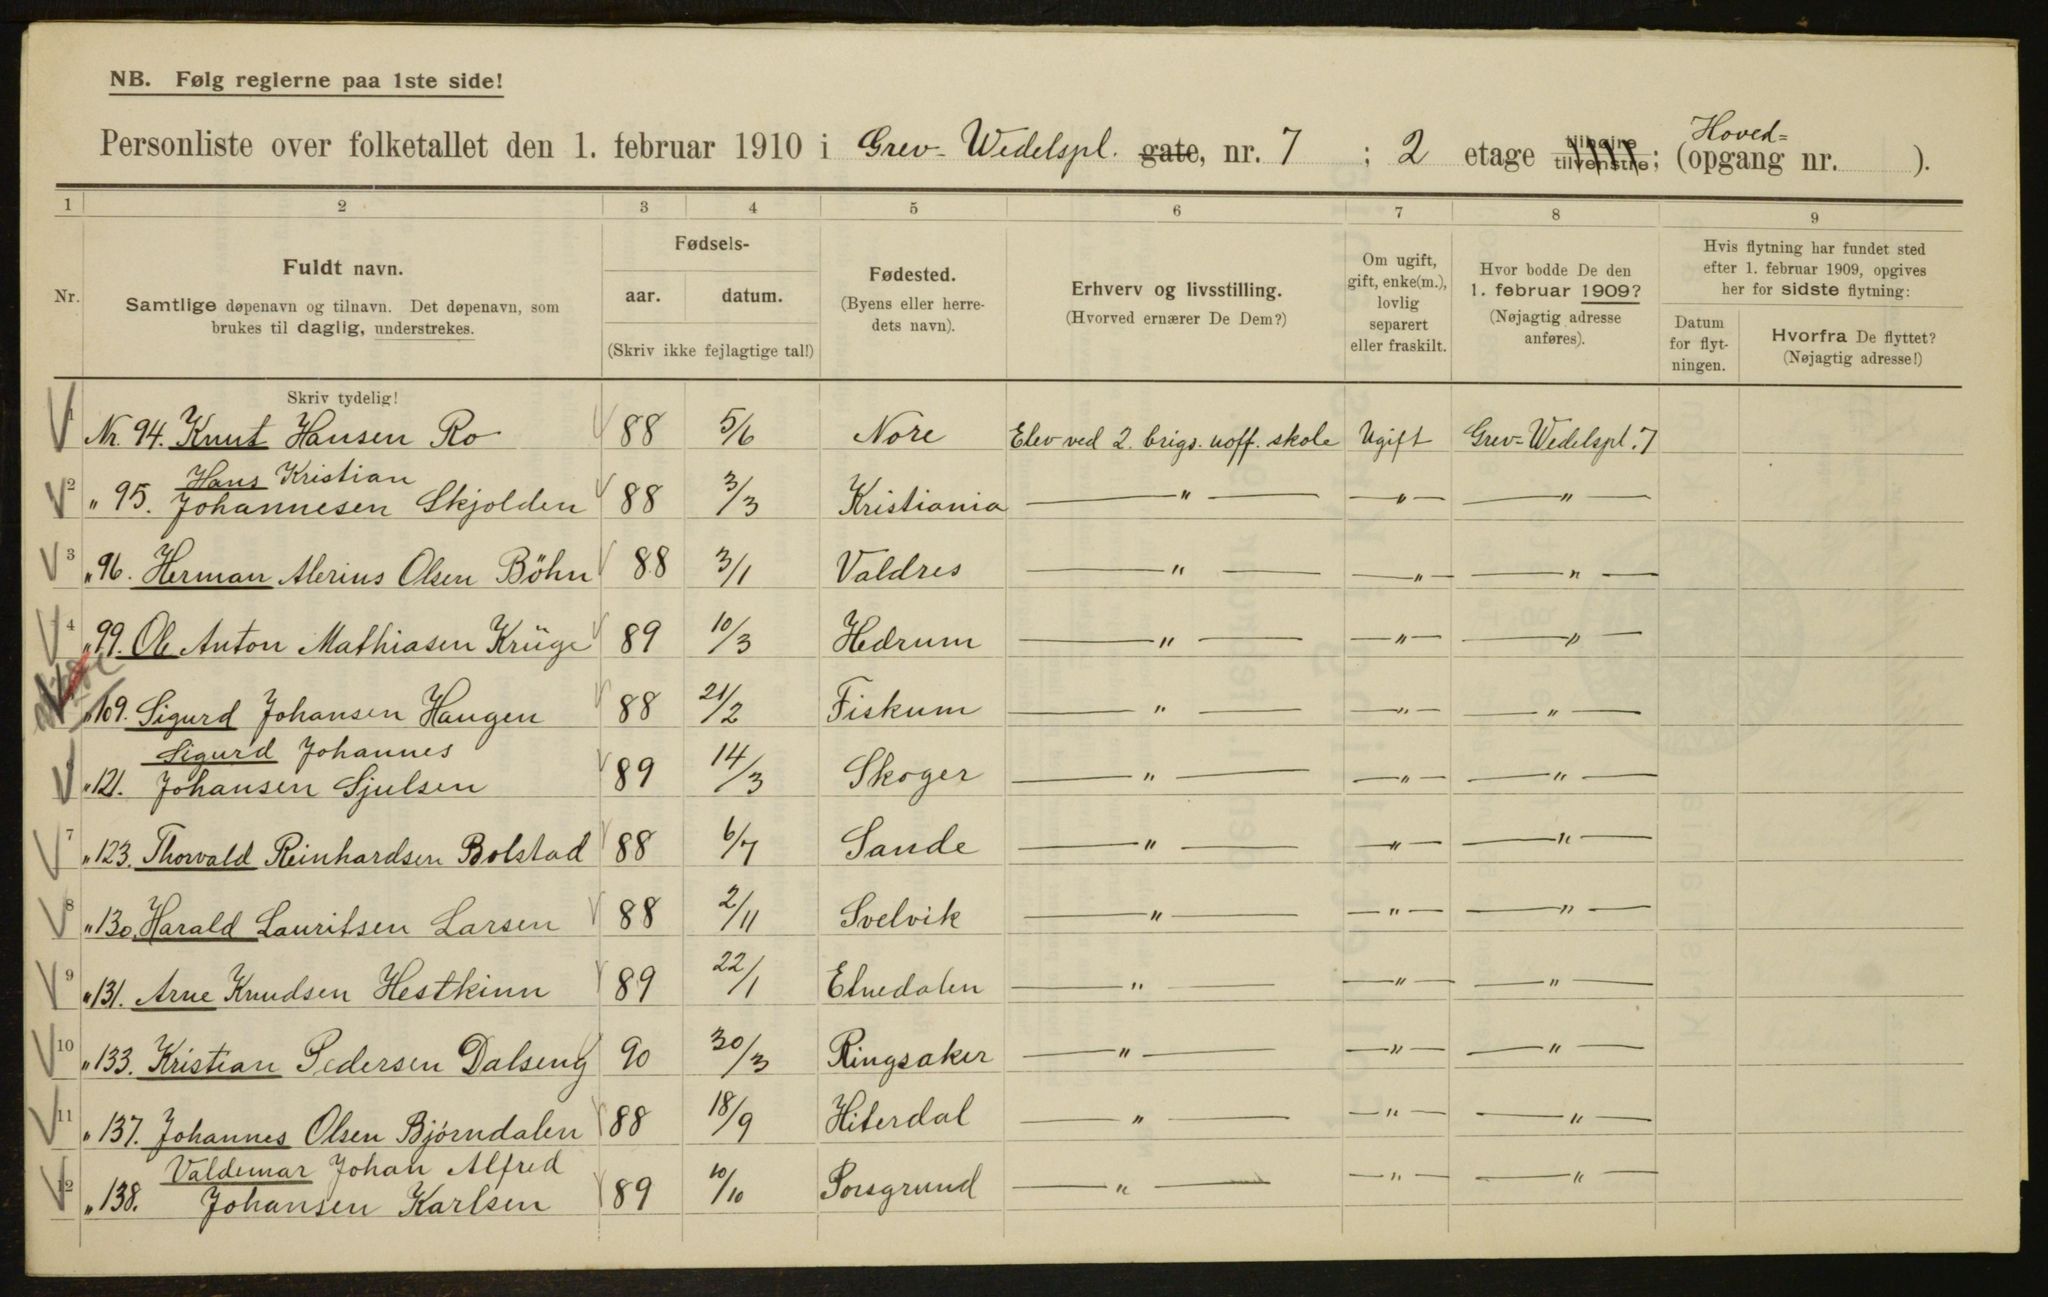 NB. Følg reglerne paa 1ste side!
Personliste over folketallet den 1. februar 1910 i Grev-Wedelspl. gate, nr. 7 ; 2 etage tilhøire tilvenstre; (Hoved= opgang nr. ).
1 2 3 4 5 6 7 8 9
Nr.
Fuldt navn.
Samtlige døpenavn og tilnavn. Det døpenavn, som
brukes til daglig, understrekes.
Skriv tydelig!
Fødsels-
aar. datum.
(Skriv ikke fejlagtige tal!)
Fødested.
(Byens eller herre-
dets navn).
Erhverv og livsstilling.
(Hvorved ernærer De Dem?)
Om ugift,
gift, enke(m.),
lovlig
separert
eller fraskilt.
Hvor bodde De den
1. februar 1909?
(Nøjagtig adresse
anføres).
Hvis flytning har fundet sted
efter 1. februar 1909, opgives
her for sidste flytning:
Datum
for flyt-
ningen.
Hvorfra De flyttet?
(Nøjagtig adresse!)
1 Nr. 94. Knut Hansen Ro 88 5/6 Nore Elev ved 2. brigs. uoff. skole Ugift Grev-Wedelspl. 7
Hans Kristian
2 " 95. Johannesen Skjolden 88 3/3 Kristiania — " — — " — — " —
3 " 96. Herman Alerius Olsen Böhn 88 3/1 Valdres — " — — " — — " —
4 " 99. Ole Anton Mathiasen Krüge 89 10/3 Hedrum — " — — " — — " —
" 109. Sigurd Johansen Haugen 88 21/2 Fiskum — " — — " — — " —
Sigurd Johannes
" 121. Johansen Sjulsen 89 14/3 Skoger — " — — " — — " —
7 " 123. Thorvald Reinhardsen Bolstad 88 6/7 Sande — " — — " — — " —
8 " 130. Harald Lauritsen Larsen 88 2/11 Svelvik — " — — " — — " —
9 " 131. Arne Knudsen Hestkinn 89 22/1 Etnedalen — " — — " — — " —
10 " 133. Kristian Pedersen Dalseng 90 30/3 Ringsaker — " — — " — — " —
11 " 137. Johannes Olsen Bjørndalen 88 18/9 Hiterdal — " — — " — — " —
Valdemar Johan Alfred
12 " 138. Johansen Karlsen 89 10/10 Porsgrund — " — — " — — " —